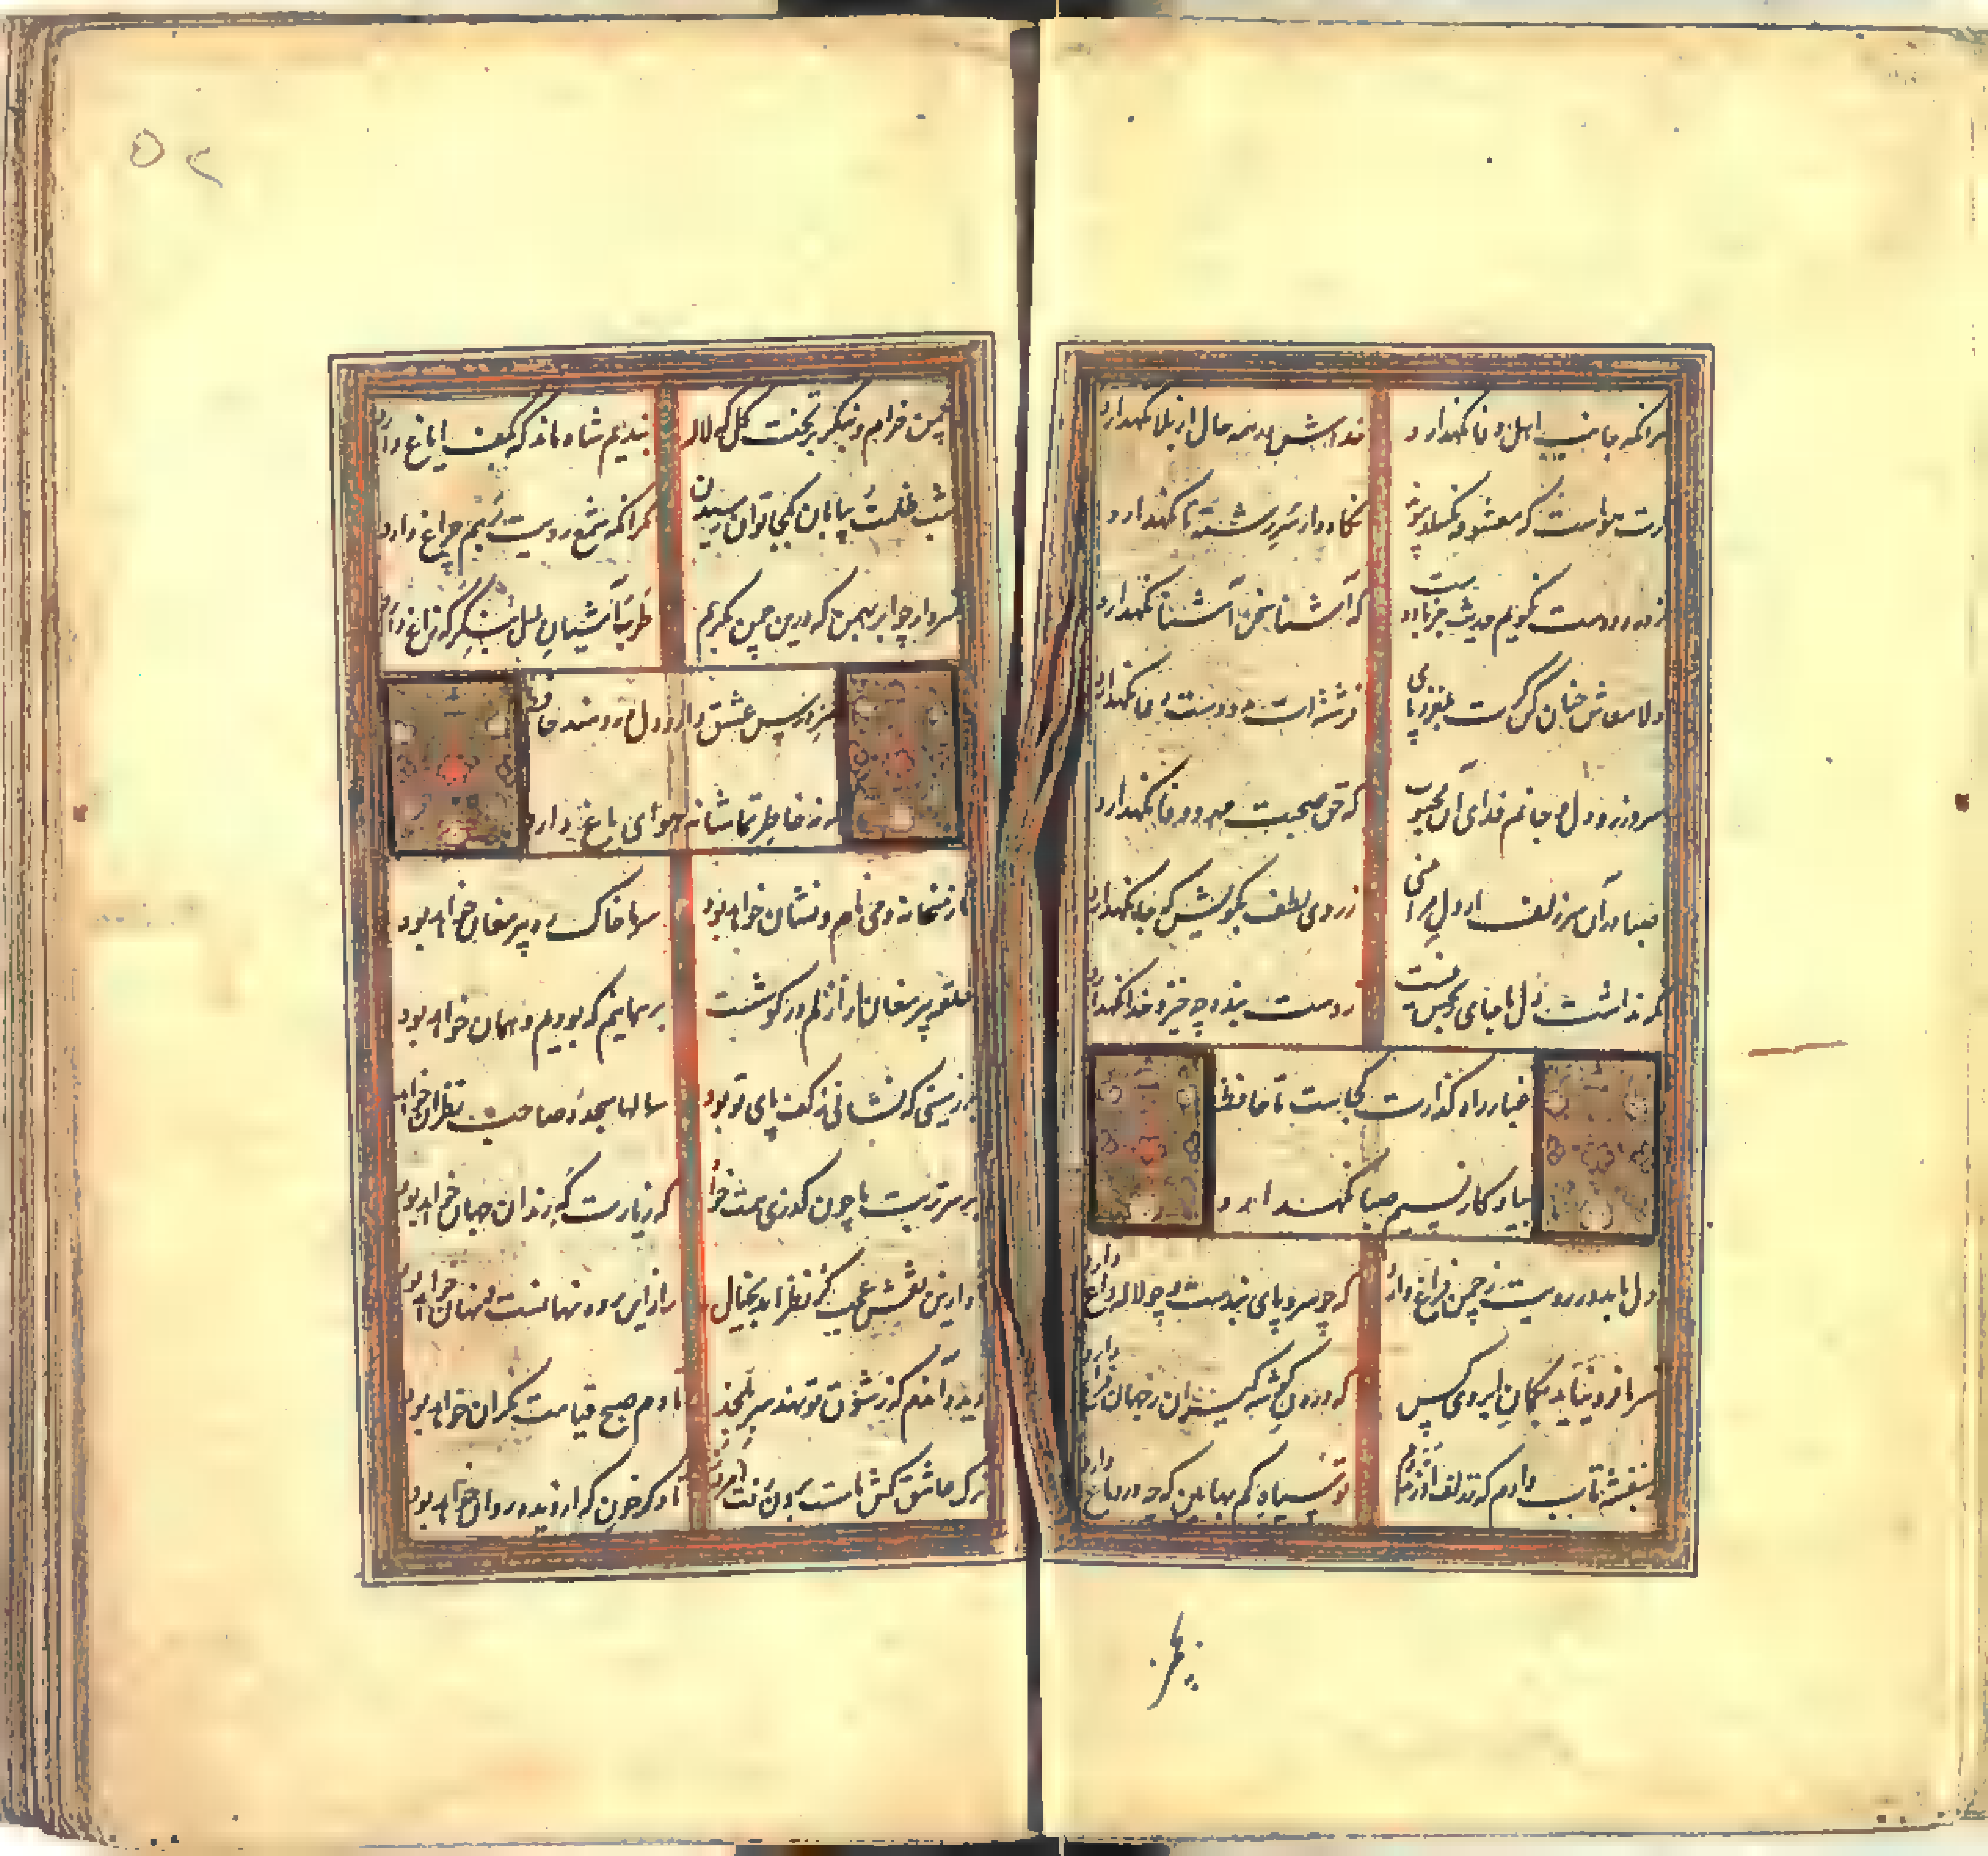 هر آنکه جانب اهل وفا نگهدارد خداش در همه حال از بلا نگهدارد
گرت هواست که معشوق نگسلد پیوند نگاه دار سر رشته تا نگهدارد
حدیث دوست نگویم مگر بحضرت دوست که آشنا سخن آشنا نگهدارد
دلا معاش چنان کن گرت بلغزد پای فرشته ات بدو دست دعا نگهدارد
سر و زر و دل و جانم فدای آن محبوب که حق صحبت مهر و وفا نگهدارد
صبا در آن سر زلف ار دل مرا بینی ز روی لطف بگویش که جا نگهدارد
نگه نداشت دل ما جای رنجش نیست ز دست بنده چه خیزد خدا نگهدارد
غبار راه گذارت کجاست تا حافظ
بیادگار نسیم صبا نگهدارد
دل ما بدور رویت ز چمن فراغ دارد که چو سرو پای بندست و چو لاله داغ دارد
سر ما فرو نیاید بکمان ابروی کس که درون گوشه گیران ز جهان فراغ دارد
ز بنفشه تاب دارم که ز زلف او زند دم تو سیاه کم بها بین که چه در دماغ دارد
بچمن
بچمن خرام و بنگر بر تخت گل که لاله بندیم شاه ماند که بکف ایاغ دارد
شب ظلمت و بیابان بکجا توان رسیدن مگر آنکه شمع رویت برهم چراغ دارد
سزدار چو ابر بهمن که درین چمن بگریم طرب آشیان بلبل بنگر که زاغ دارد
سر درس عشق دارد دل دردمند حافظ
که نه خاطر تماشا نه هوای باغ دارد
تا ز میخانه و می نام و نشان خواهد بود سر ما خاک ره پیر مغان خواهد بود
حلقه پیر مغان از ازلم در گوشست بر همانیم که بودیم و همان خواهد بود
بر زمینی که نشانی ز کف پای تو بود سالها سجده صاحب نظران خواهد بود
بر سر تربت ما چون گذری همت خواه که زیارت گه رندان جهان خواهد بود
عیب گر نظر آید بخیال راز این پرده نهانست و نهان خواهد بود
دیده آندم که ز شوق تو نهد سر بلحد تا دم صبح قیامت نگران خواهد بود
ترک عاشق کش ما مست برون رفت امروز تا دگر خون که از دیده روان خواهد بود
۵۲